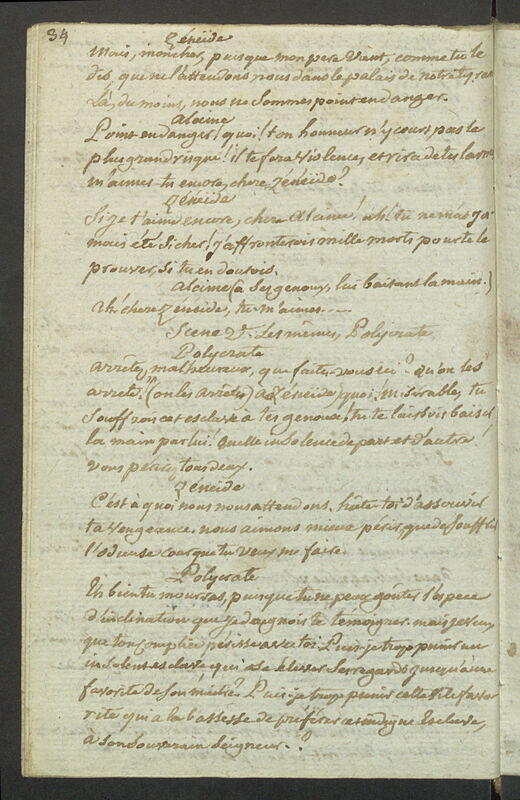 34
Zéneïde
Mais, mon cher, puisque mon pere vient, comme tu le
dis, que ne l'attendons nous dans le palais de notre tyran
Là, du moins, nous ne sommes point en danger.
Alcime
Point en danger! quoi! ton honneur n'y court pas le
plus grand risque! il te fera violence, et rira de tes larmes
m'aimes-tu encore, chere Zéneïde?
Zéneïde
Si je t'aime encore, cher Alcime! ah! tu ne m'as ja
mais été si cher! j'affronterois mille morts pour te le
prouver, si tu en doutois.
Alcime (à ses genoux, lui baisant la main.)
Ah! chere Zéneïde, tu m'aimes....
Scene V. Les mêmes, Polycrate
Polycrate
Arrête, malheureux, que faites-vous ici? Qu'on les
arrête. (on les arrête) (à Zéneïde) quoi! misérable, tu
souffrois cet esclave à tes genoux, tu te laissois baiser
la main par lui! Quelle insolence de part et d'autre!
vous périrez tous deux.
Zéneïde
C'est à quoi nous nous attendons. hâte-toi d'assouvir
ta vengeance. nous aimons mieux périr, que de souffrir
l'odieuse cour que tu veux me faire.
Polycrate
Eh bien tu mourras, puisque tu ne peux goûter l'espece
d'inclination que je daignois te témoigner. mais je veux
que ton complice périsse avec toi. Puis-je trop punir un
insolent esclave qui ose élever ses regards jusqu'à une
favorite de son maître? Puis-je trop punir cette vile favo
rite qui a la bassesse de préférer cet indigne esclave,
à son souverain seigneur.?